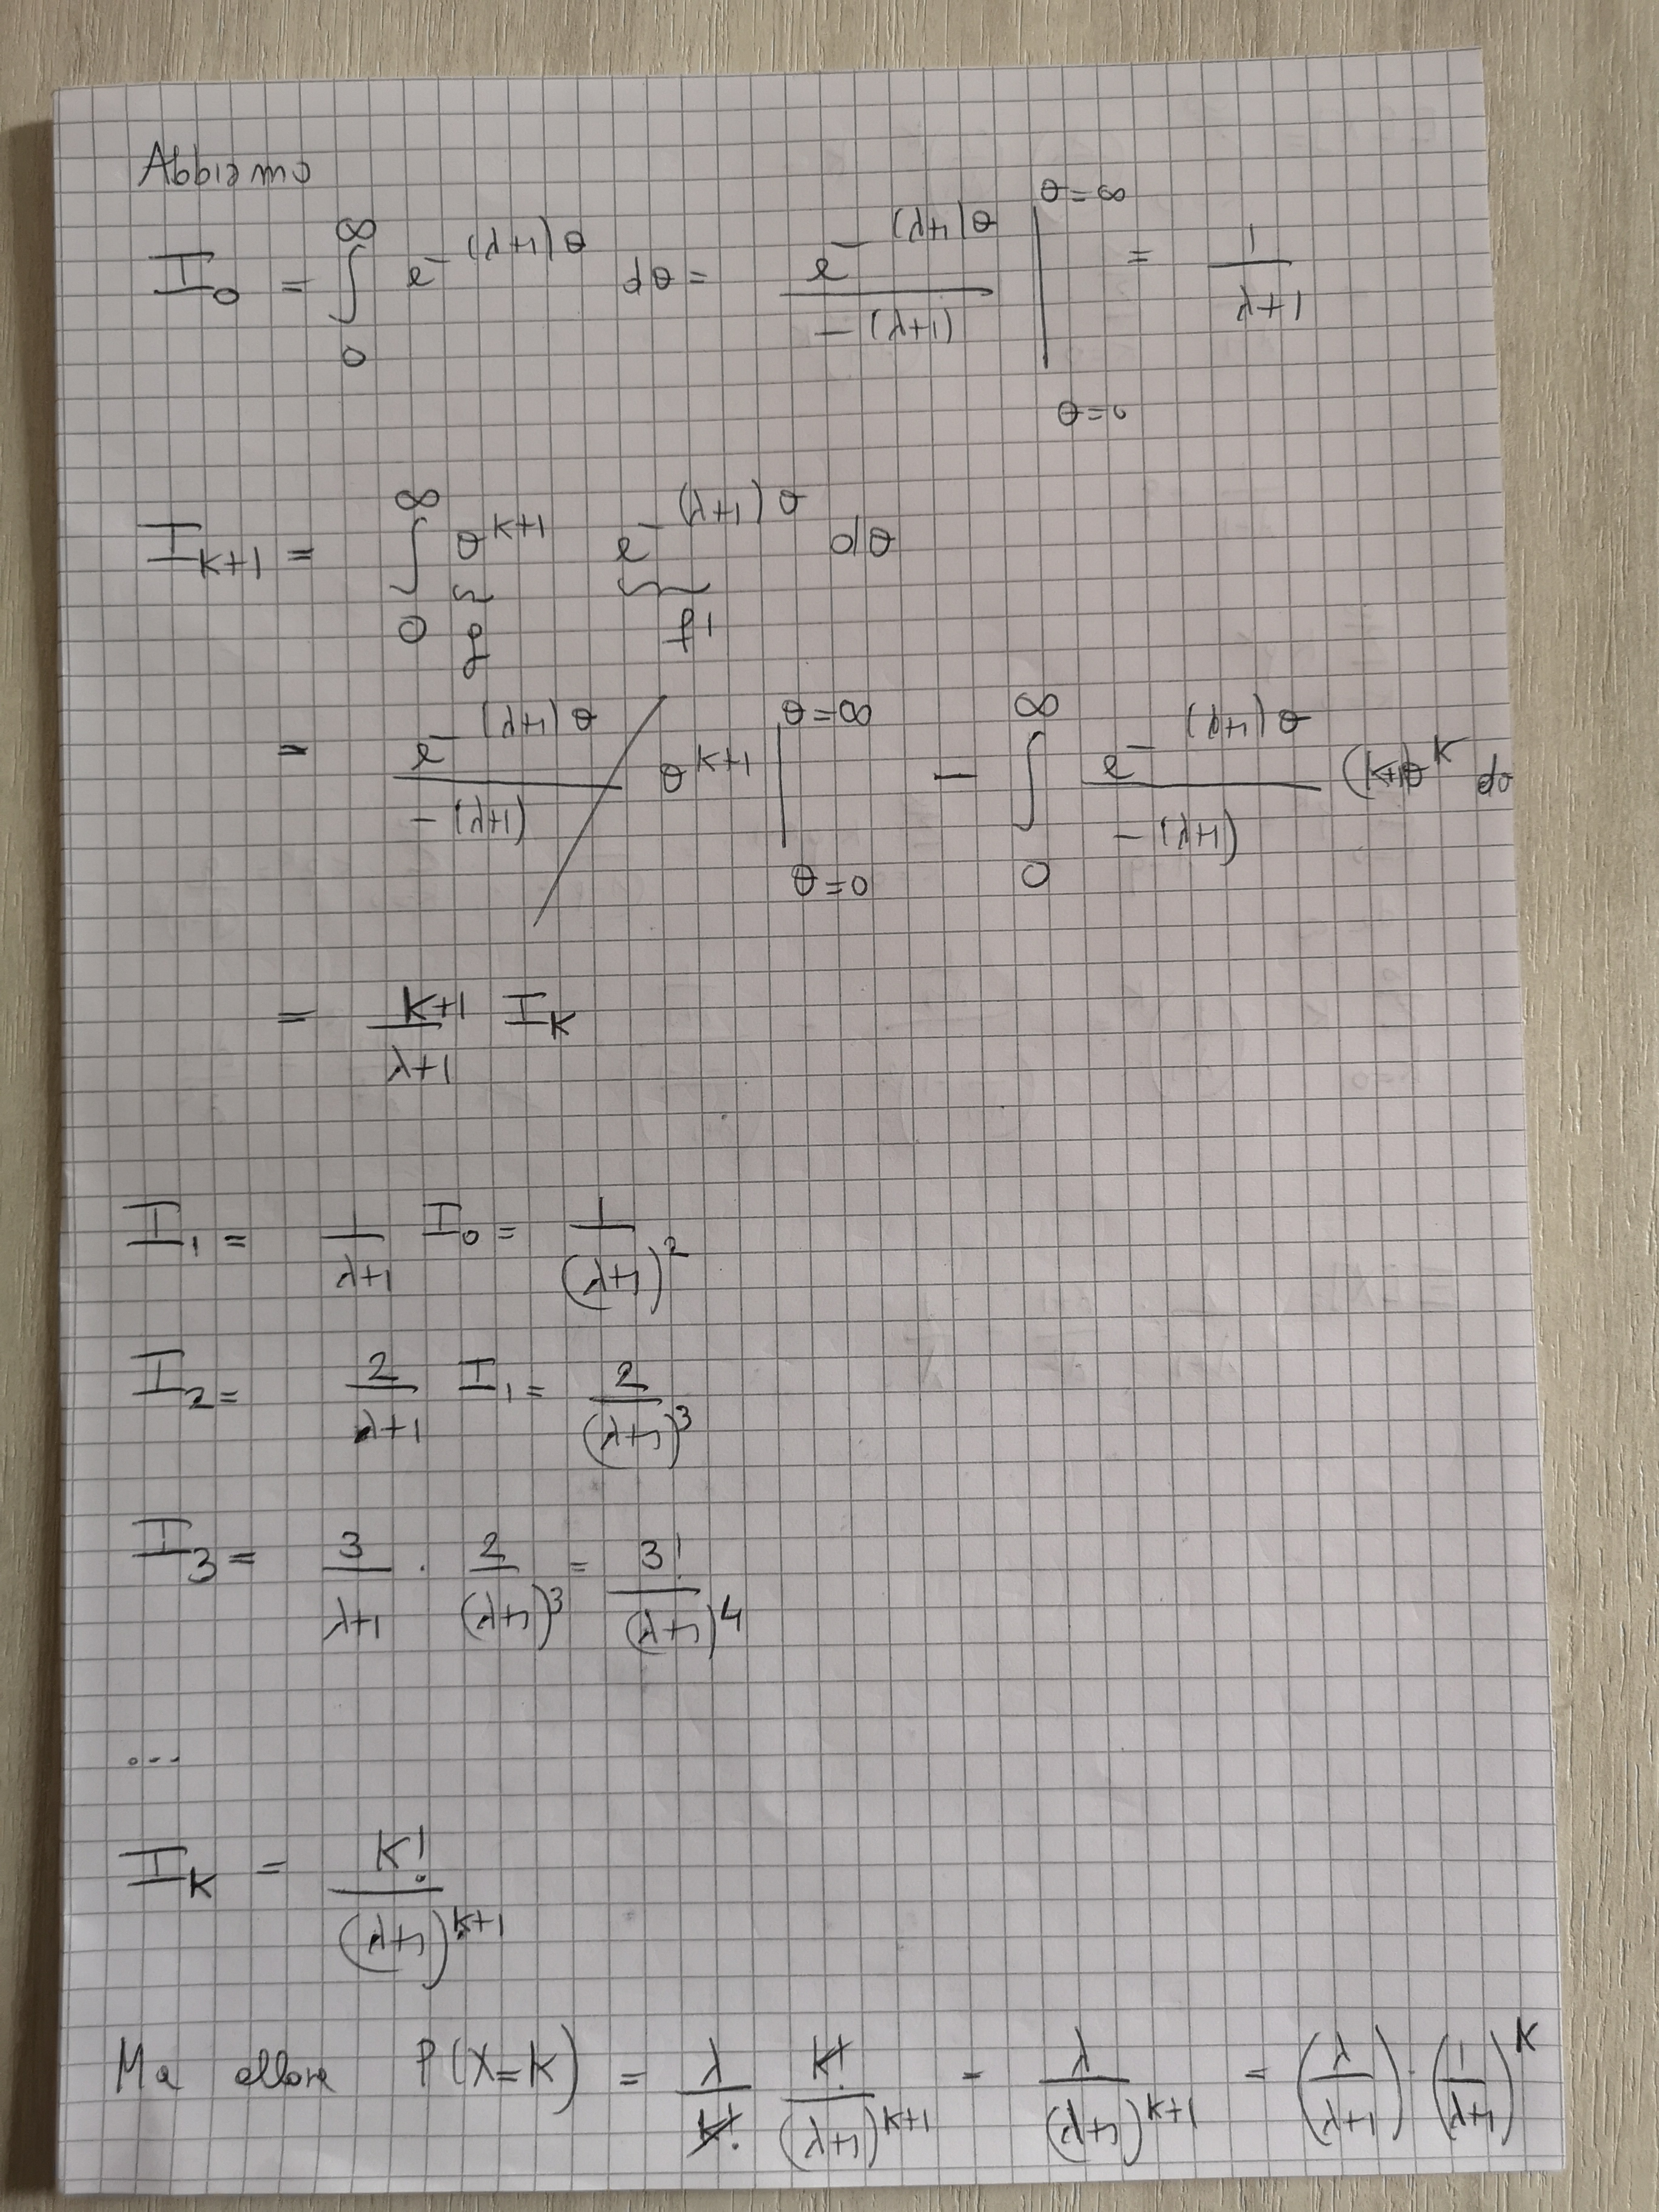 Abbiamo
I₀ = ∫₀^∞ e^{-(λ+1)θ} dθ = e^{-(λ+1)θ} / -(λ+1) |_{θ=0}^{θ=∞} = 1/(λ+1)
I_{k+1} = ∫₀^∞ θ^{k+1} e^{-(λ+1)θ} dθ
g f'
= e^{-(λ+1)θ} / -(λ+1) θ^{k+1} |_{θ=0}^{θ=∞} - ∫₀^∞ e^{-(λ+1)θ} / -(λ+1) (k+1)θ^k dθ
= (k+1)/(λ+1) I_k
I₁ = 1/(λ+1) I₀ = 1/(λ+1)²
I₂ = 2/(λ+1) I₁ = 2/(λ+1)³
I₃ = 3/(λ+1) · 2/(λ+1)³ = 3!/(λ+1)⁴
...
I_k = k!/(λ+1)^{k+1}
Ma allora P(X=k) = λ/k! k!/(λ+1)^{k+1} = λ/(λ+1)^{k+1} = (λ/(λ+1)) · (1/(λ+1))^k